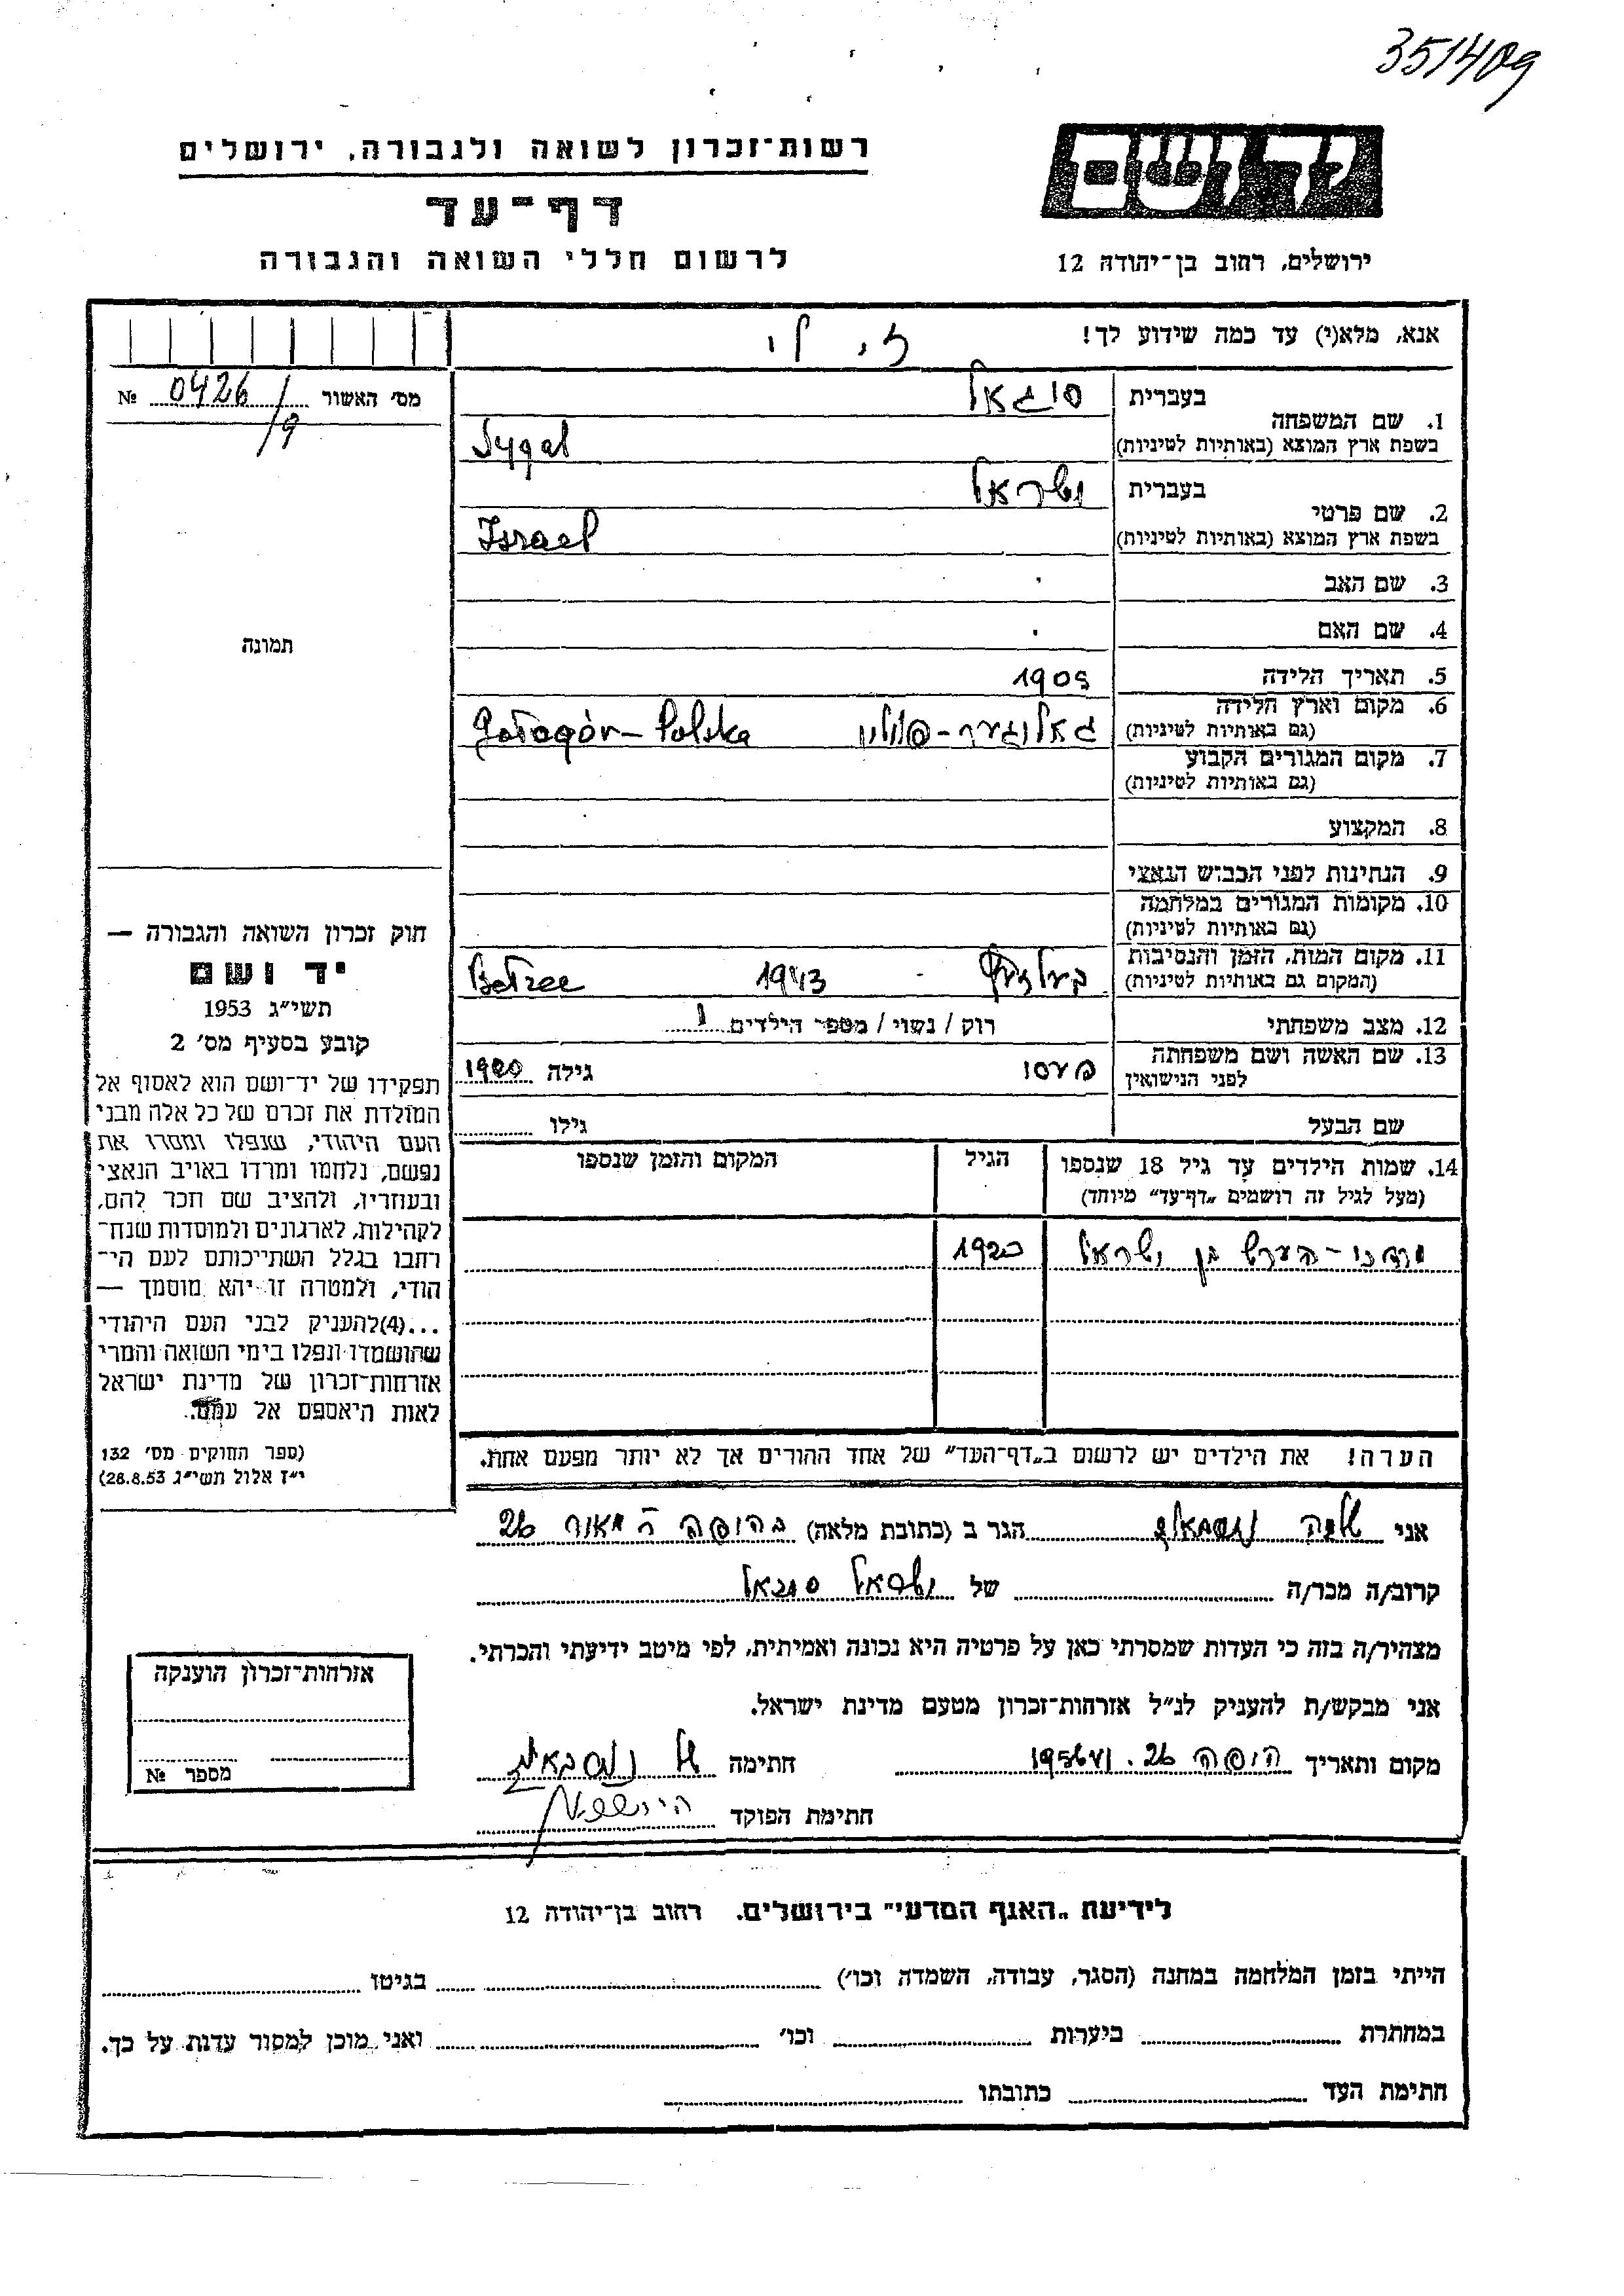 351409
רשות־זכרון לשואה ולגבורה, ירושלים
דף־עד
לרשום חללי השואה והגבורה
יד ושם
ירושלים, רחוב בן־יהודה 12
אנא, מלא(י) עד כמה שידוע לך!
מס׳ האשור 0426/9 №
1. שם המשפחה
בעברית סיגאל
בשפת ארץ המוצא (באותיות לטיניות) Sygal
2. שם פרטי
בעברית ישראל
בשפת ארץ המוצא (באותיות לטיניות) Israel
3. שם האב
4. שם האם
5. תאריך הלידה 1905
6. מקום וארץ הלידה
(גם באותיות לטיניות) גאלוגער-פולין Gołogór-Polska
7. מקום המגורים הקבוע
(גם באותיות לטיניות)
8. המקצוע
9. הנתינות לפני הכבוש הנאצי
10. מקומות המגורים במלחמה
(גם באותיות לטיניות)
11. מקום המות, הזמן והנסיבות
(המקום גם באותיות לטיניות) 1943 Bełzec
12. מצב משפחתי רוק / נשוי / מספר הילדים 1
13. שם האשה ושם משפחתה
לפני הנישואין גילה
שם הבעל גילו
14. שמות הילדים עד גיל 18 שנספו
(מעל לגיל זה רושמים „דף־עד״ מיוחד)
הגיל
המקום והזמן שנספו
מרדכי-הערש בן ישראל
הערה! את הילדים יש לרשום ב„דף־העד״ של אחד ההורים אך לא יותר מפעם אחת.
תמונה
חוק זכרון השואה והגבורה —
יד ושם
תשי״ג 1953
קובע בסעיף מס׳ 2
תפקידו של יד־ושם הוא לאסוף אל
המולדת את זכרם של כל אלה מבני
העם היהודי, שנפלו ומסרו את
נפשם, נלחמו ומרדו באויב הנאצי
ובעוזריו, ולהציב שם וזכר להם,
לקהילות, לארגונים ולמוסדות שנח־
רחבו בגלל השתייכותם לעם הי־
הודי, ולמטרה זו יהא מוסמך —
...(4)להעניק לבני העם היהודי
שהושמדו ונפלו בימי השואה והמרי
אזרחות־זכרון של מדינת ישראל
לאות היאספם אל עמם.
(ספר החוקים מס׳ 132
י״ז אלול תשי״ג 28.8.53)
אני הגר ב (כתובת מלאה) 26
קרוב/ה מכר/ה של ישראל סיגאל
מצהיר/ה בזה כי העדות שמסרתי כאן על פרטיה היא נכונה ואמיתית, לפי מיטב ידיעתי והכרתי.
אני מבקש/ת להעניק לנ״ל אזרחות־זכרון מטעם מדינת ישראל.
מקום ותאריך חיפה 26. VI 1956 חתימה
חתימת הפוקד
אזרחות־זכרון הוענקה
מספר №
לידיעת „האגף המדעי״ בירושלים. רחוב בן־יהודה 12
הייתי בזמן המלחמה במחנה (הסגר, עבודה, השמדה וכו׳) בגיטו
במחתרת ביערות וכו׳ ואני מוכן למסור עדות על כך.
חתימת העד כתובתו